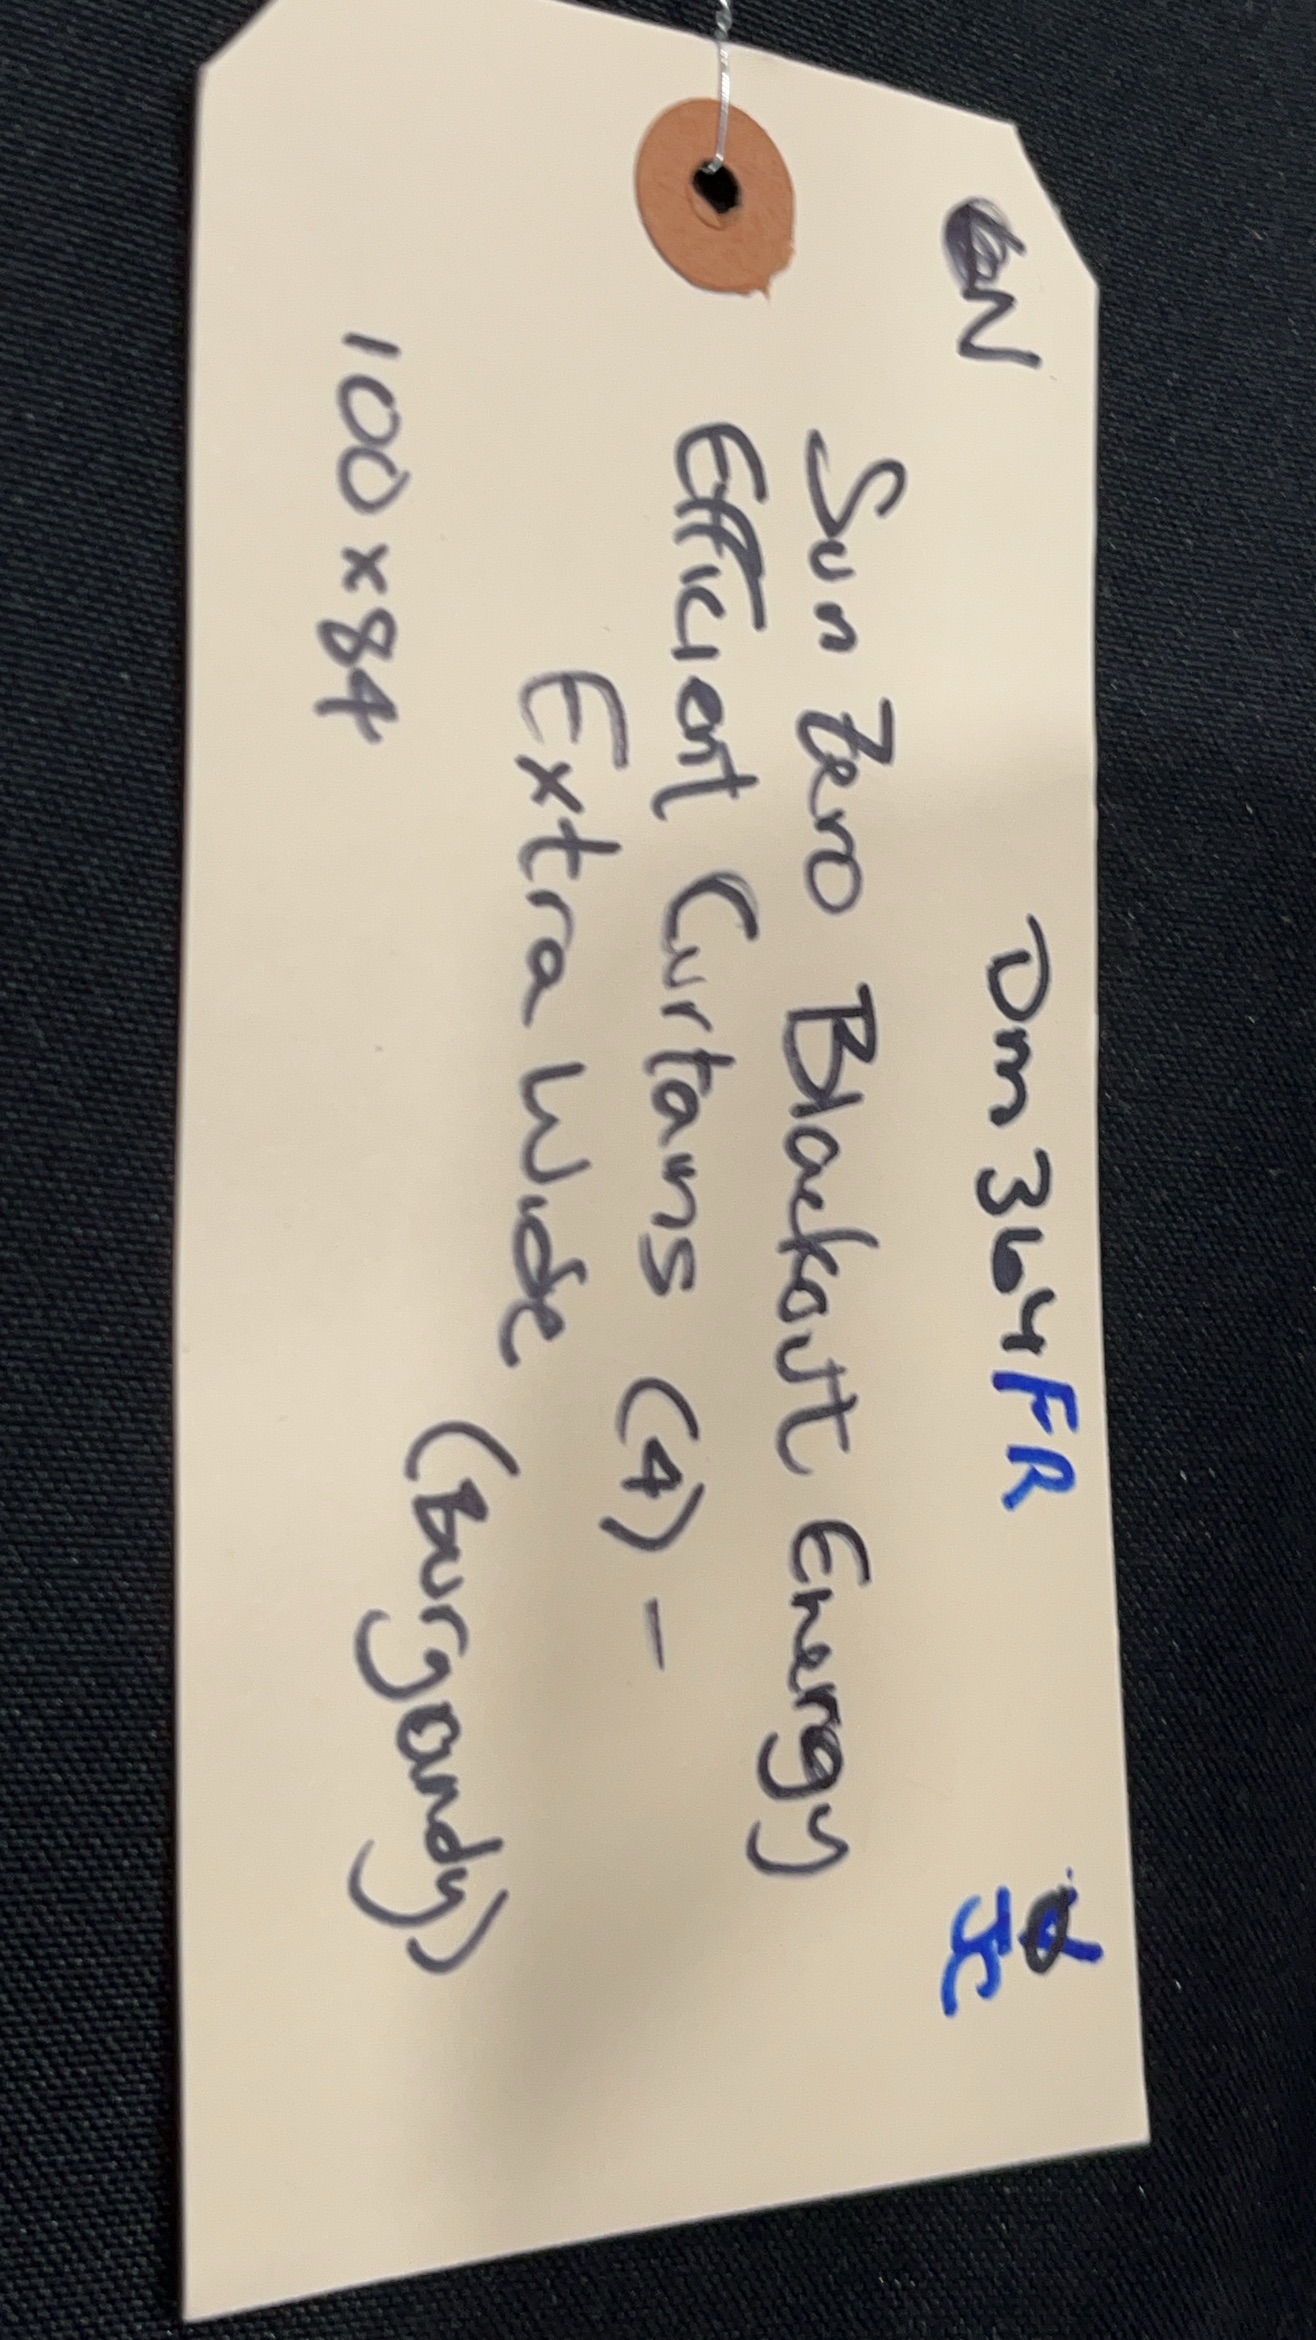 Dm364FR
JC
Sun Zero Blackout Energy
Efficient Curtains (4) -
Extra Wide
(Burgandy)
100 x 84